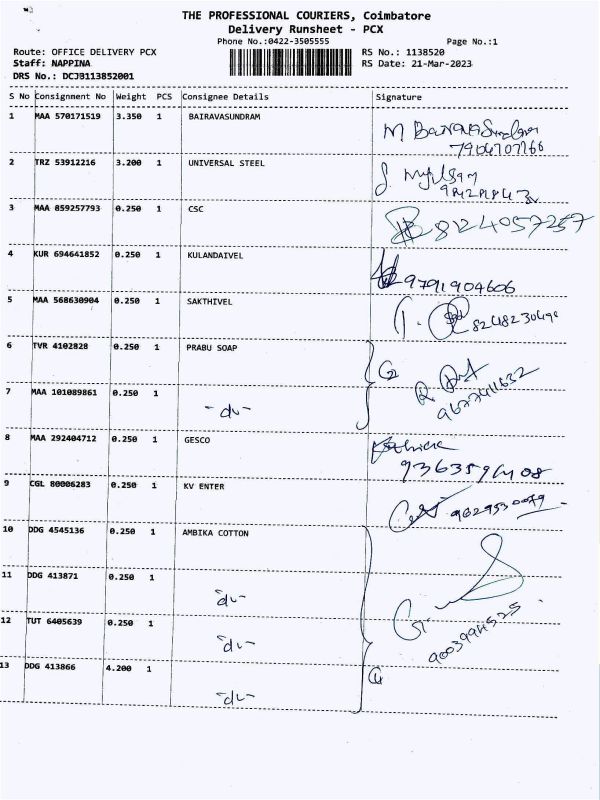 THE PROFESSIONAL COURIERS, Coimbatore
Delivery Runsheet - PCX
Phone No.:0422-3505555 Page No.:1
Route: OFFICE DELIVERY PCX RS No.: 1138520
Staff: NAPPINA RS Date: 21-Mar-2023
DRS No.: DCJB113852001
S No Consignment No Weight PCS Consignee Details Signature
1 MAA 570171519 3.350 1 BAIRAVASUNDRAM
7904707766
2 TRZ 53912216 3.200 1 UNIVERSAL STEEL
3 MAA 859257793 0.250 1 CSC
8124057257
4 KUR 694641852 0.250 1 KULANDAIVEL
9791904606
5 MAA 568630904 0.250 1 SAKTHIVEL
6 TVR 4102828 0.250 1 PRABU SOAP
7 MAA 101089861 0.250 1 -do-
8 MAA 292404712 0.250 1 GESCO
9 CGL 80006283 0.250 1 KV ENTER
10 DDG 4545136 0.250 1 AMBIKA COTTON
11 DDG 413871 0.250 1 -do-
12 TUT 6405639 0.250 1 -do-
13 DDG 413866 4.200 1 -do-